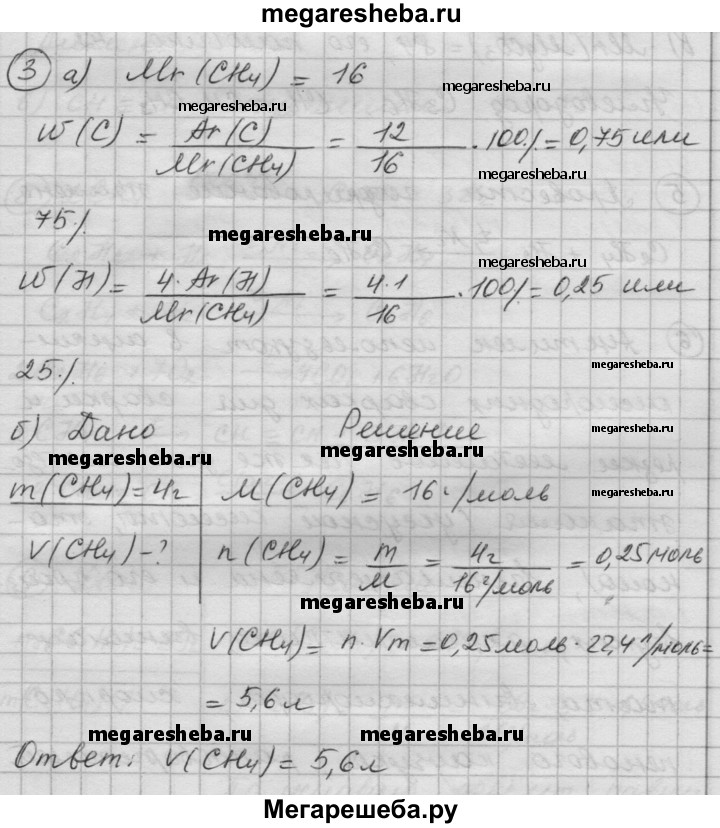 megaresheba.ru
③ а) Mr(CH4) = 16
megaresheba.ru
W(C) = Ar(C)/Mr(CH4) = 12/16 · 100% = 0,75 или
megaresheba.ru
75%.
megaresheba.ru
megaresheba.ru
W(H) = 4·Ar(H)/Mr(CH4) = 4·1/16 · 100% = 0,25 или
megaresheba.ru
25%.
б) Дано Решение
megaresheba.ru megaresheba.ru
m(CH4) = 4г M(CH4) = 16 г/моль
V(CH4) - ? n(CH4) = m/M = 4г/16 г/моль = 0,25 моль
megaresheba.ru
V(CH4) = n·Vm = 0,25 моль · 22,4 л/моль =
= 5,6 л
megaresheba.ru megaresheba.ru
Ответ: V(CH4) = 5,6 л
Мегарешеба.ру